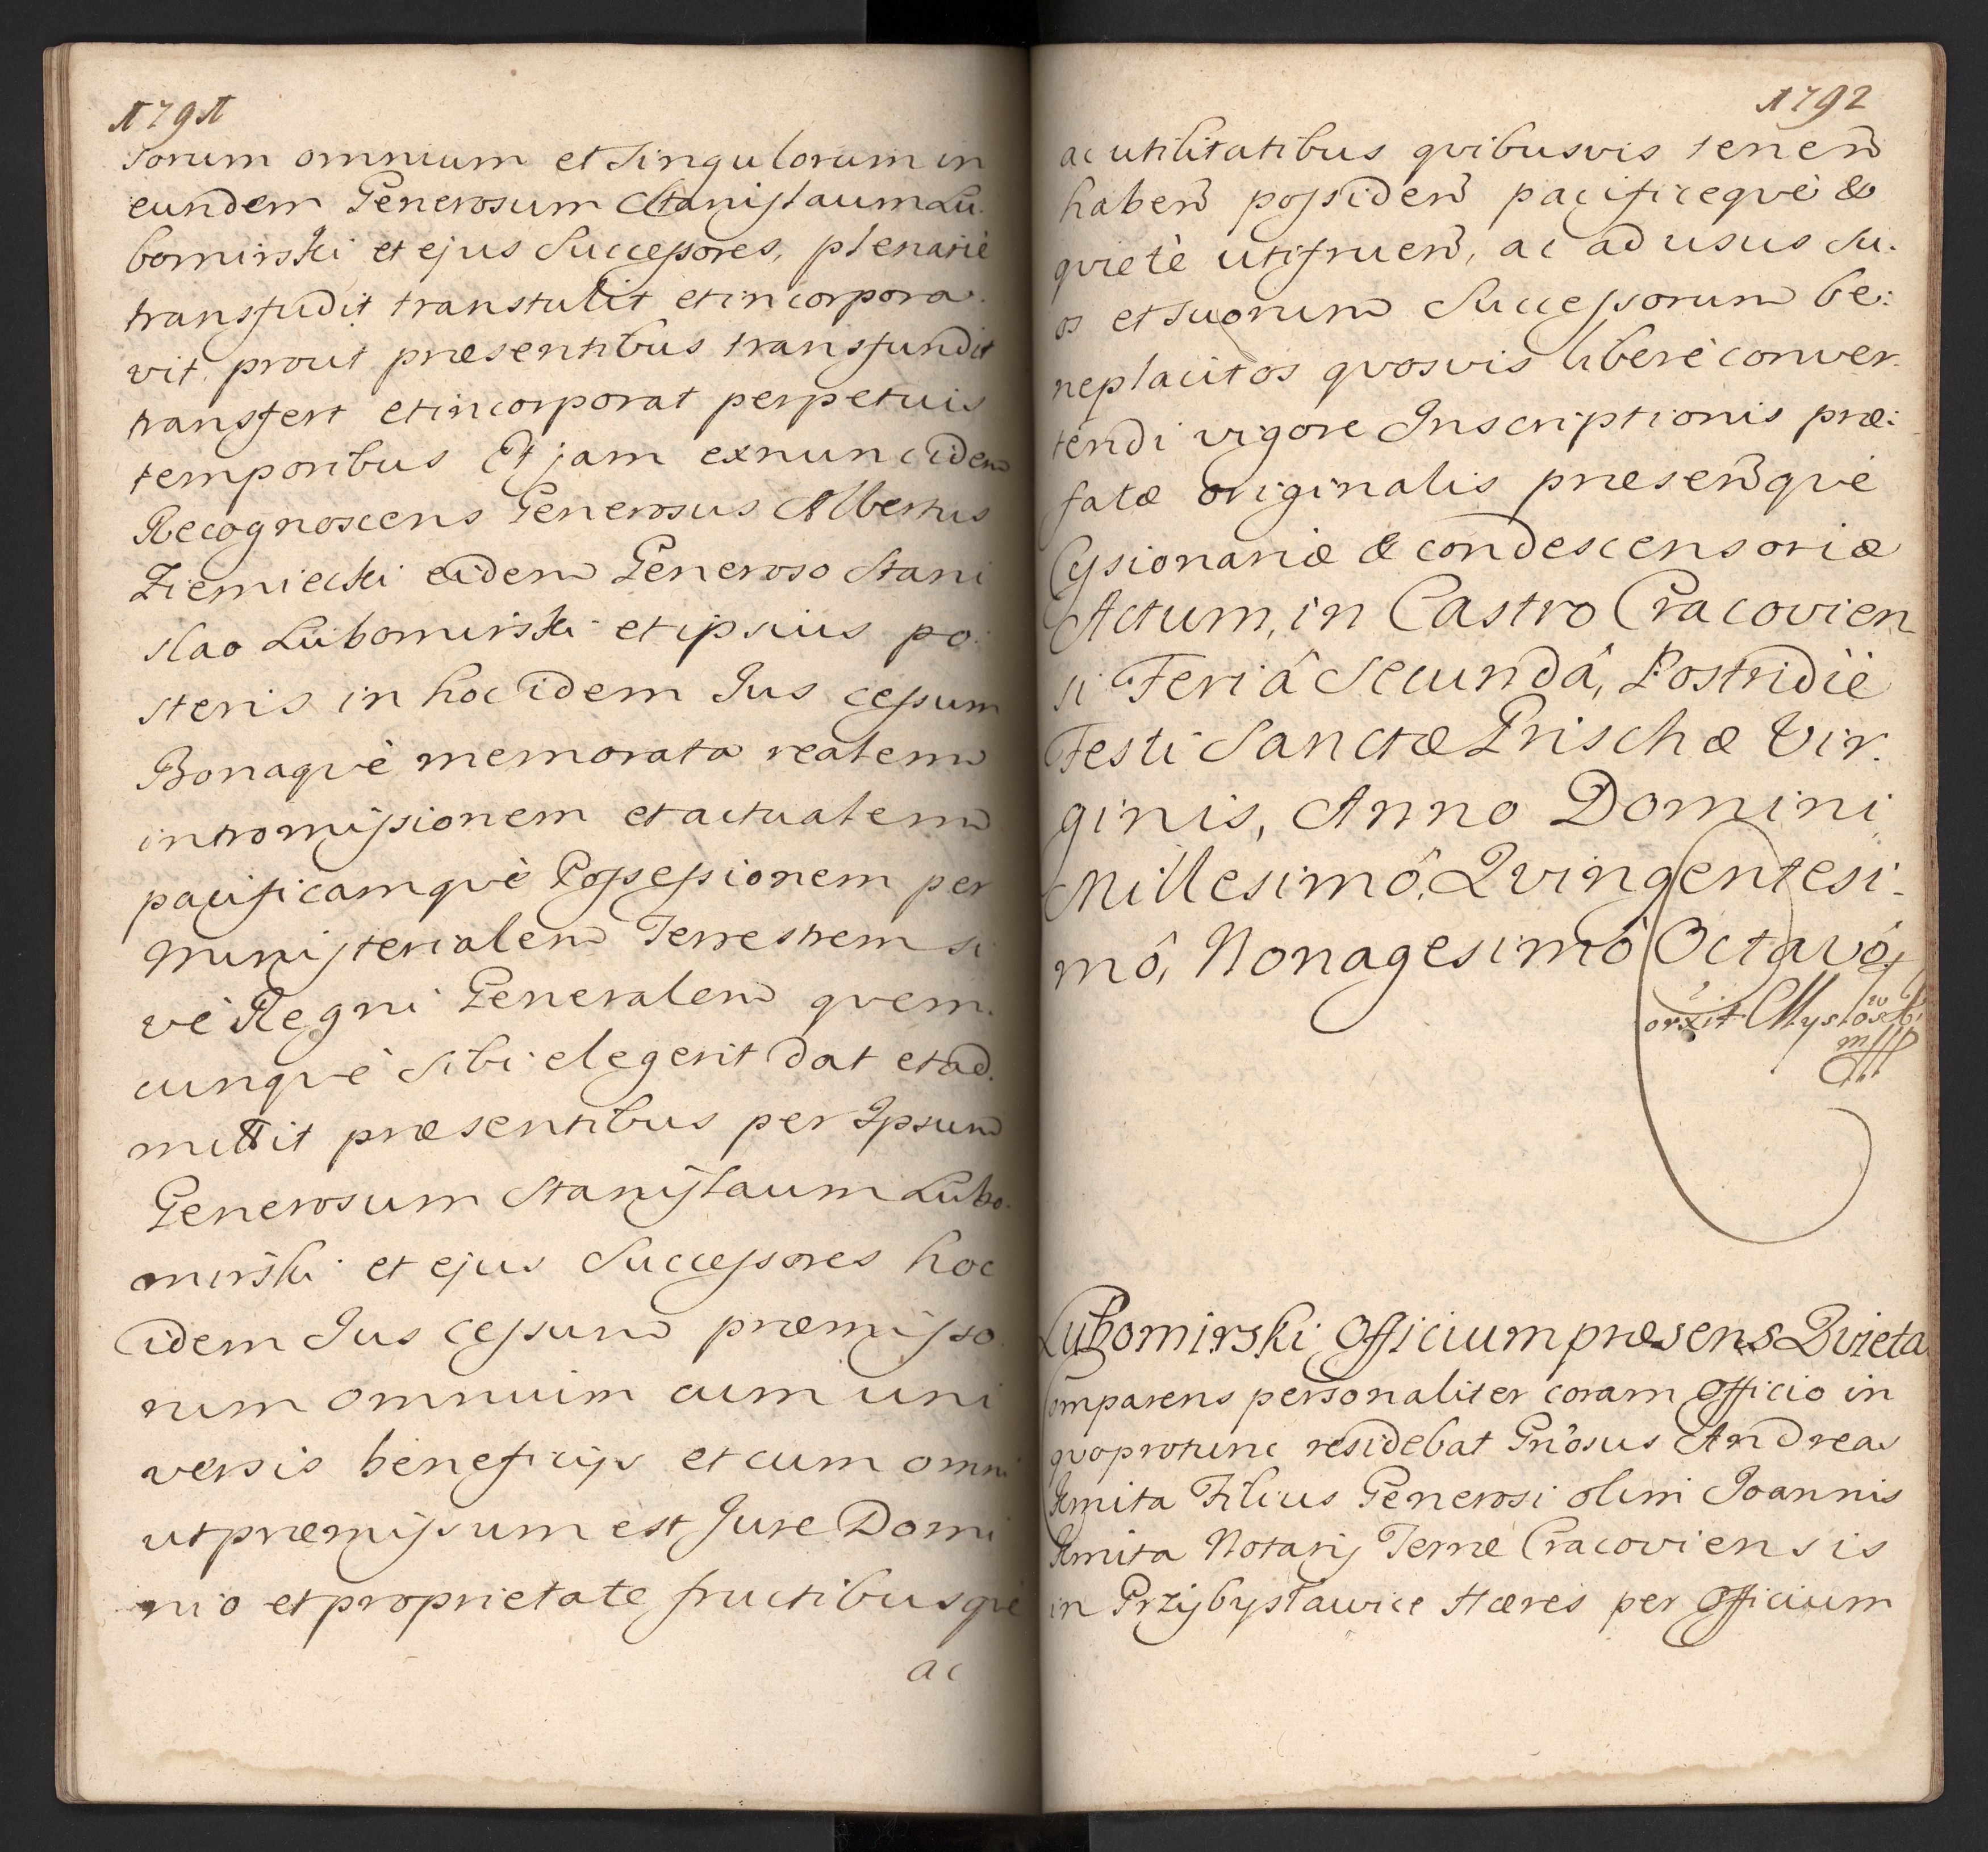 1791
sorum omnium et singulorum in
eundem Generosum Stanislaum Lu.
bomirski et ejus Successores, plenariè
transfudit transtulit et incorpora.
vit prout præsentibus transfundit
transfert et incorporat perpetuis
temporibus Et jam exnunc idem
Recognoscens Generosus Albertus
Ziemiecki eidem Generoso Stani
slao Lubomirski et ipsius po.
steris in hoc idem Jus cessum
Bonaqvè memorata realem
intromissionem et actualem
pacificamqvè Possessionem per
Ministerialem Terrestrem si
vè Regni Generalem qvem.
cunqvè sibi elegerit dat et ad.
mittit præsentibus per Ipsum
Generosum Stanislaum Lubo.
mirski et ejus Successores hoc
idem Jus cessum præmisso.
rum omnuim cum uni
versis beneficijs et cum omni
ut præmissum est Jure Domi
nio et proprietate fructibusqvè
ac
1792
ac utilitatibus qvibusvis tenen̄
haben̄ possiden̄ pacificeqvè &
qvietè utifruen̄, ac ad usus su.
os et suorum Successorum be:
neplacitos qvosvis liberè conver.
tendi vigore Inscriptionis præ:
fatæ originalis præsen̄qvè
Cessionariæ & condescensoriæ
Actum, in Castro Cracovien
si Feriâ Secundâ, Postridiè
Festi Sanctæ Prischæ Vir.
ginis, Anno Domini
Millesimô, Qvingentesi.
mô, Nonagesimô Octavô,
Lubomirski Officium præsens Qvieta
Comparens personaliter coram Officio in
qvo protunc residebat Gn̄osus Andreas
Kmita Filius Generosi olim Joannis
Kmita Notarij Terræ Cracoviensis
in Przybysławice Hæres per Officium